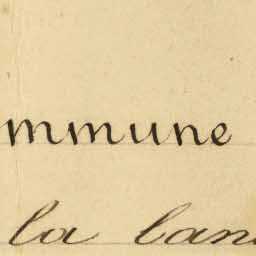 mmune
la can